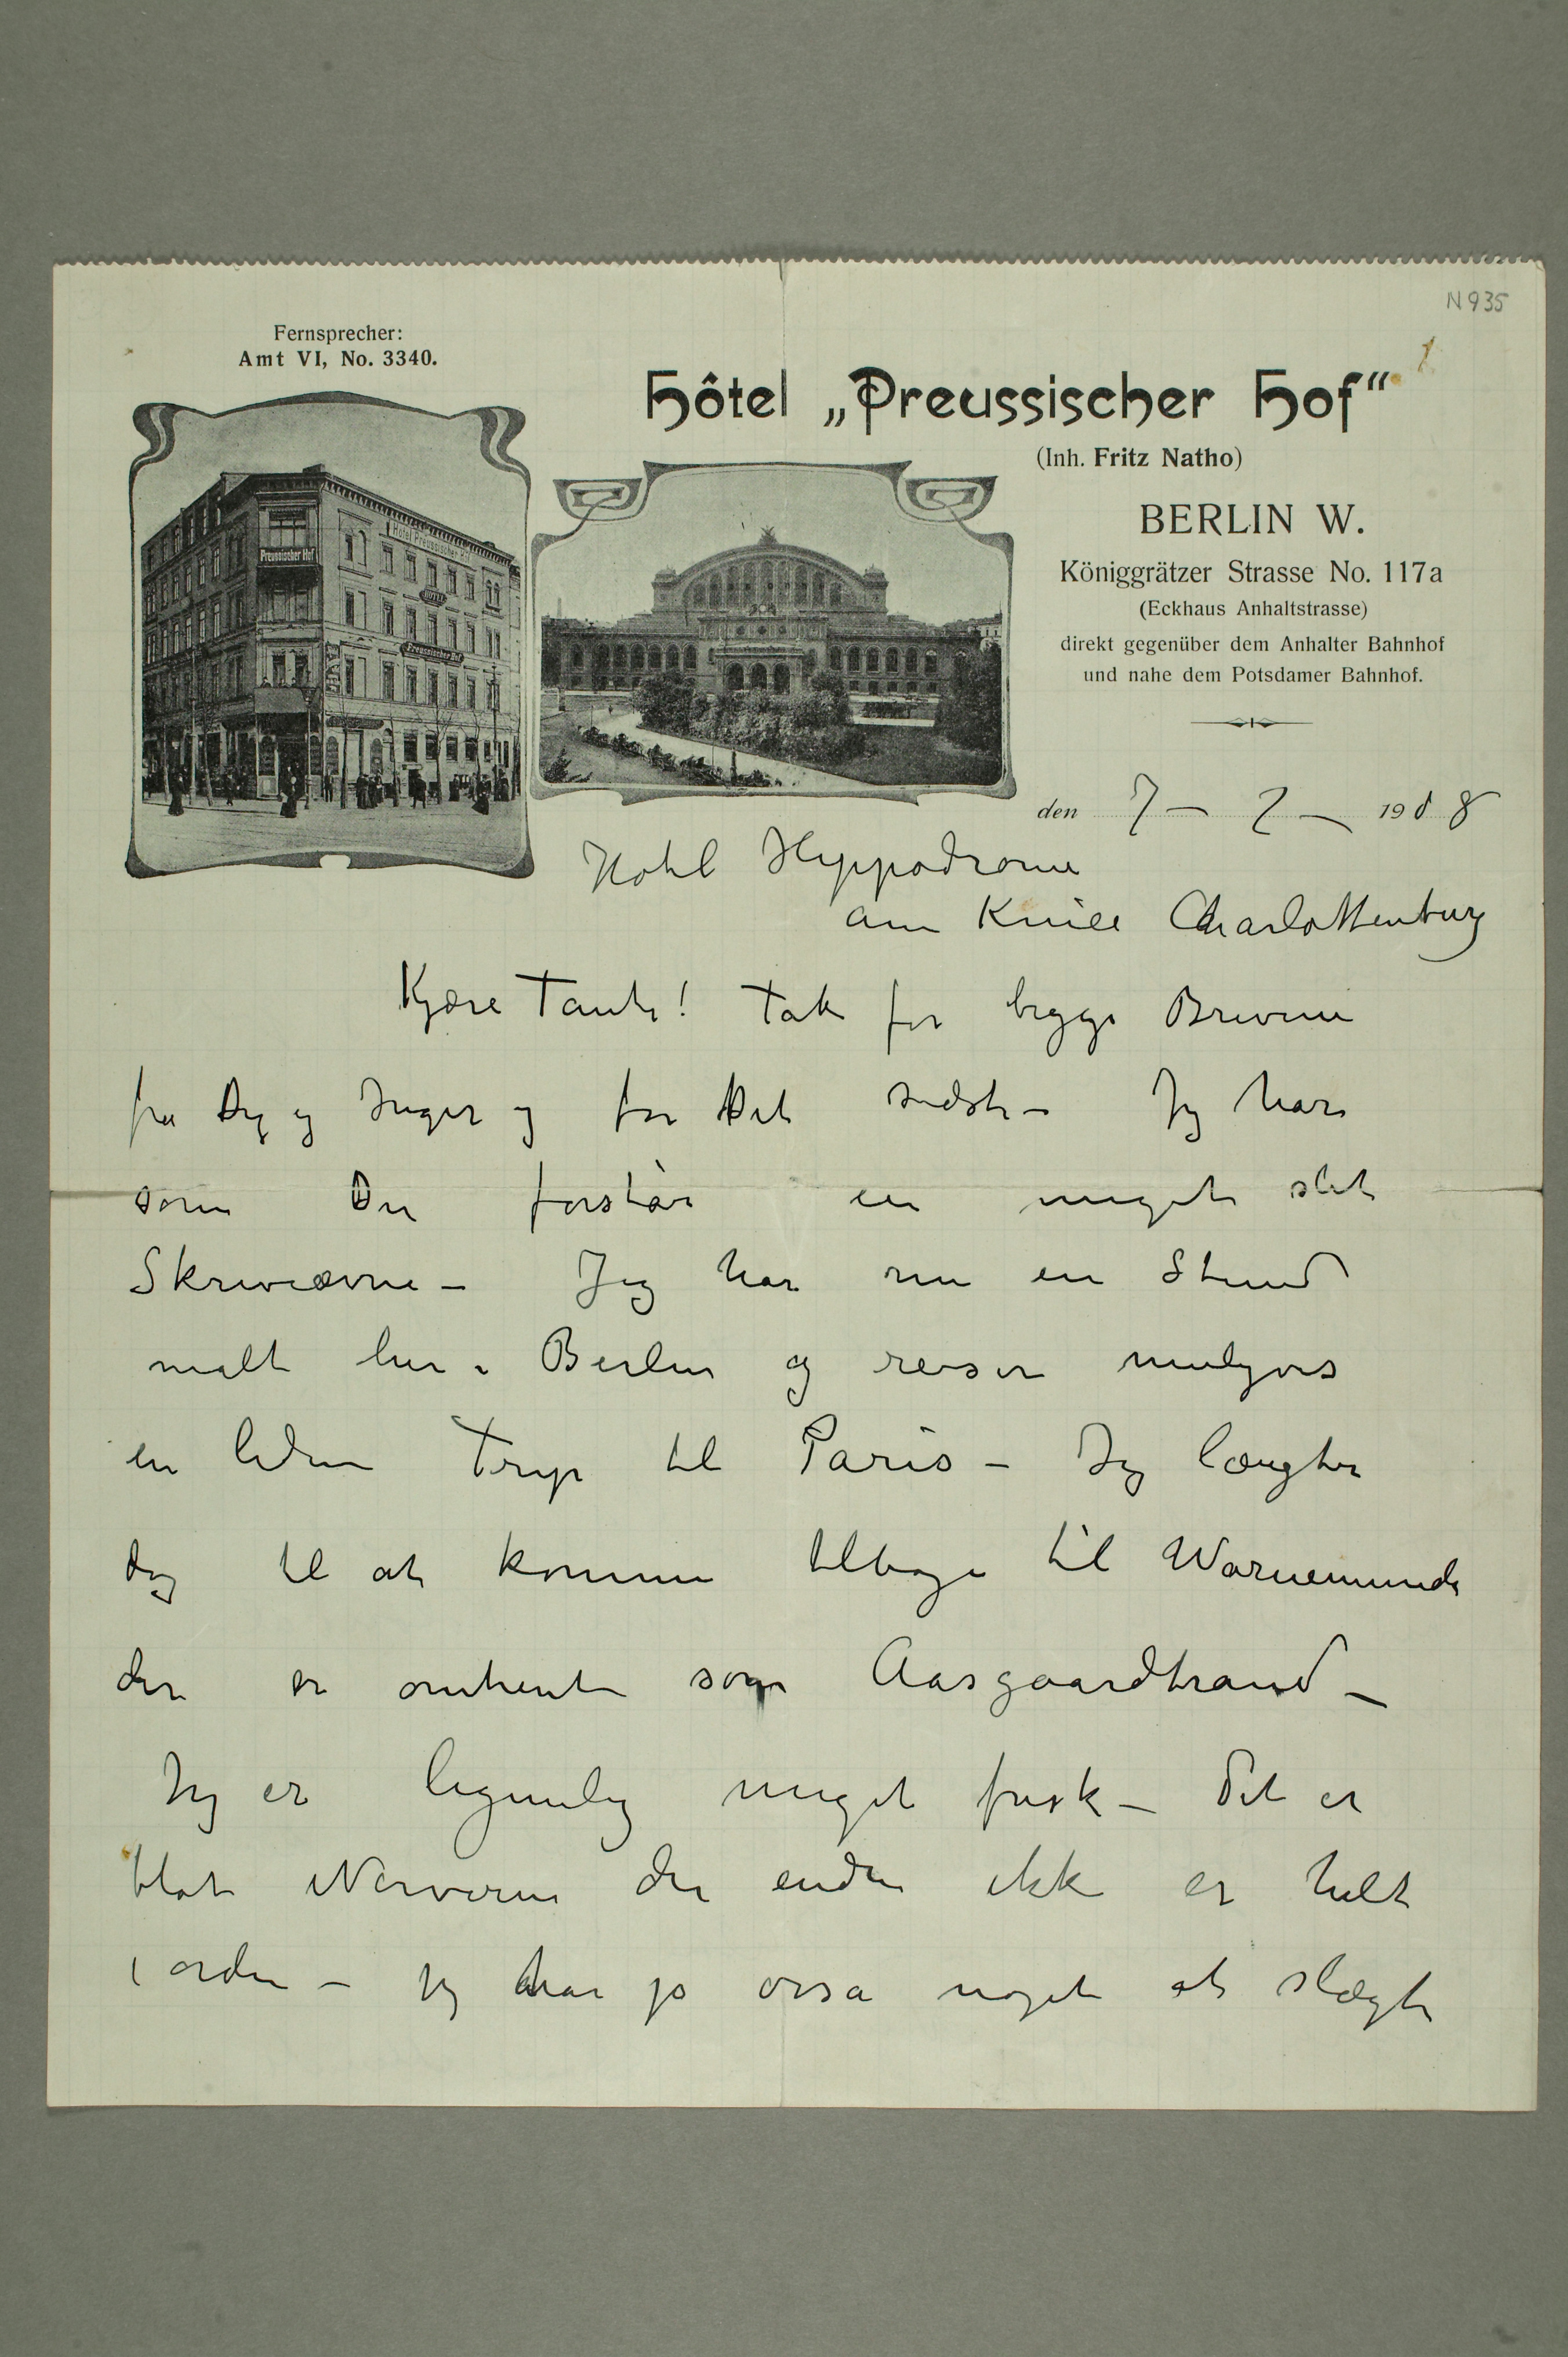 N 935
1
Fernsprecher:
Amt VI, No. 3340.
Hôtel „Preussischer Hof“
(Inh. Fritz Natho)
BERLIN W.
Königgrätzer Strasse No. 117a
(Eckhaus Anhaltstrasse)
direkt gegenüber dem Anhalter Bahnhof
und nahe dem Potsdamer Bahnhof.
Preussischer Hof
Hotel Preussischer Hof
HOTEL
Preussischer Hof
den 7 – 2 – 1908
Hotel Hyppodrome
am Kniee Charlottenburg
Kjære Tante! Tak for begge Brevene
fra Dig og Inger og for Det sidste – Jeg har
som Du forstår en meget slet
Skriveævne – Jeg har nu en Stund
malt her i Berlin og reiser muligvis
en liden Trip til Paris – Jeg længter
dog til at komme tilbage til Warnemunde
der er omtrent som Aasgaardstrand –
Jeg er legemlig meget frisk – Det er
blot Nerverne der endnu ikke er helt
i orden – jeg har jo ossa noget at slægte